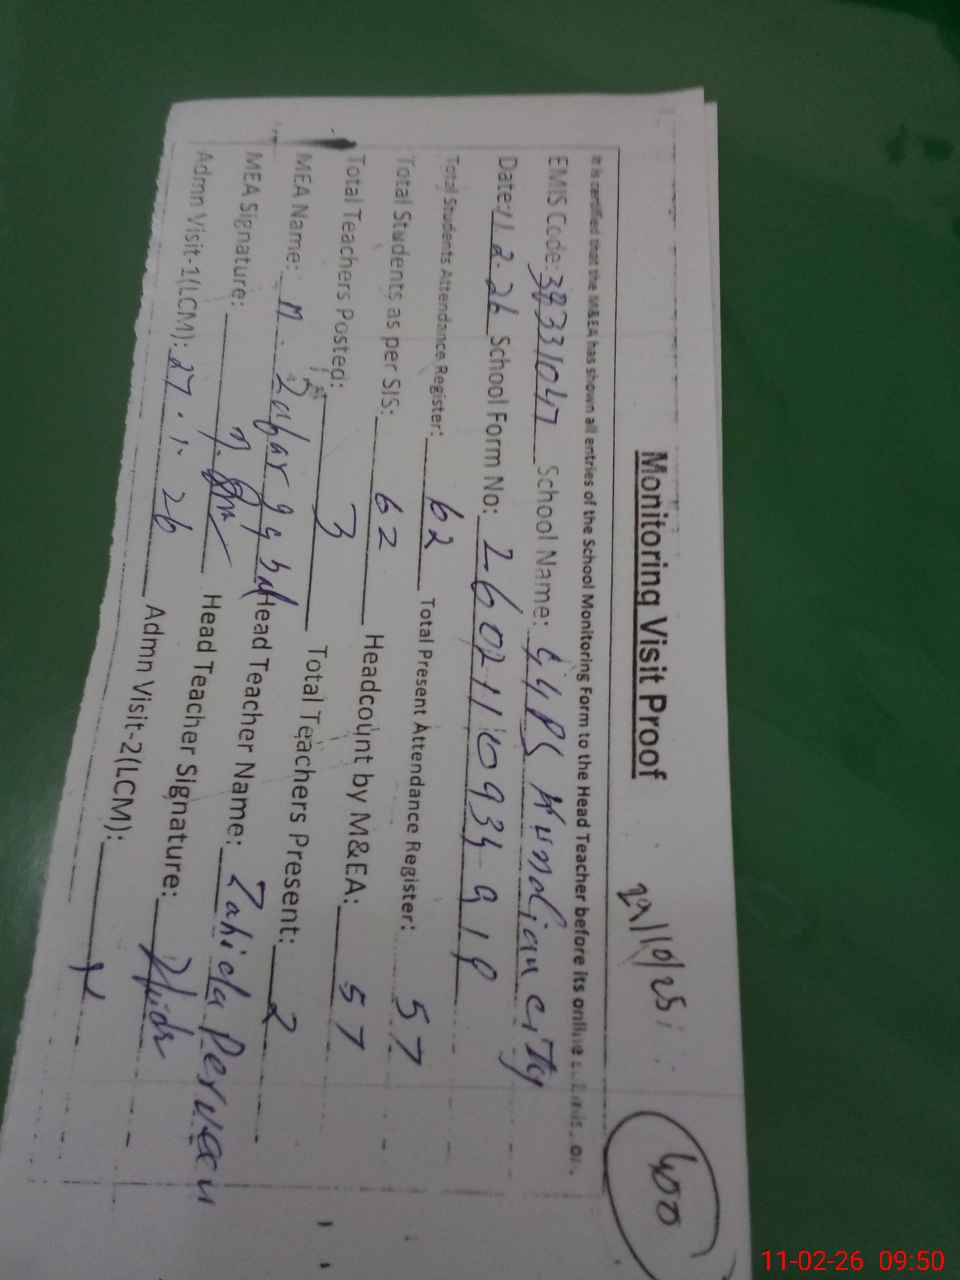 Monitoring Visit Proof
400
It is certified that the M&EA has shown all entries of the School Monitoring Form to the Head Teacher before its online
EMIS Code: 38331047 School Name: GGPS Kundian city
Date: 11.2.26 School Form No:
Total Students Attendance Register: 62 Total Present Attendance Register: 57
Total Students as per SIS: 62 Headcount by M&EA: 57
Total Teachers Posted: 3 Total Teachers Present: 2
MEA Name: M. Head Teacher Name: Zahida Perveen
MEA Signature: Head Teacher Signature:
Admn Visit-1(LCM): 27.1.26 Admn Visit-2(LCM):
11-02-26 09:50